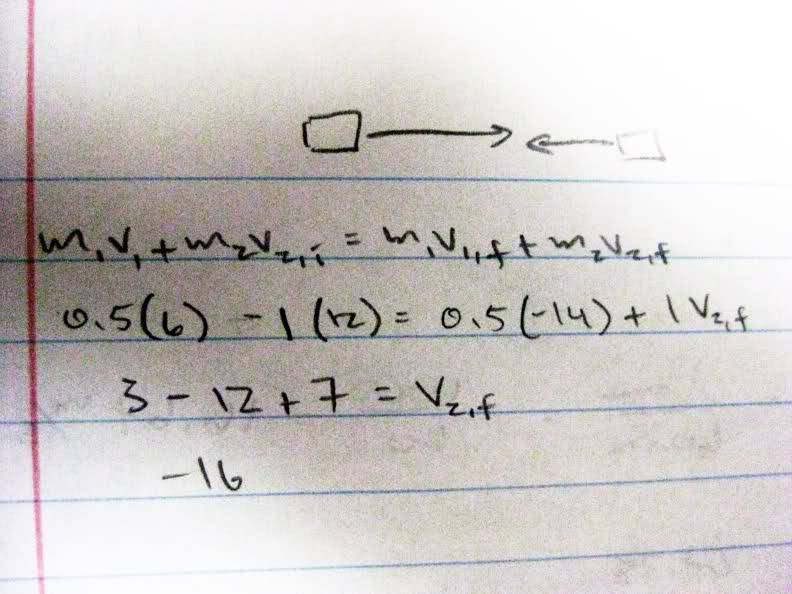 m₁v₁ + m₂v₂,ᵢ = m₁v₁,f + m₂v₂,f
0.5(6) - 1(12) = 0.5(-14) + 1 v₂,f
3 - 12 + 7 = v₂,f
-16